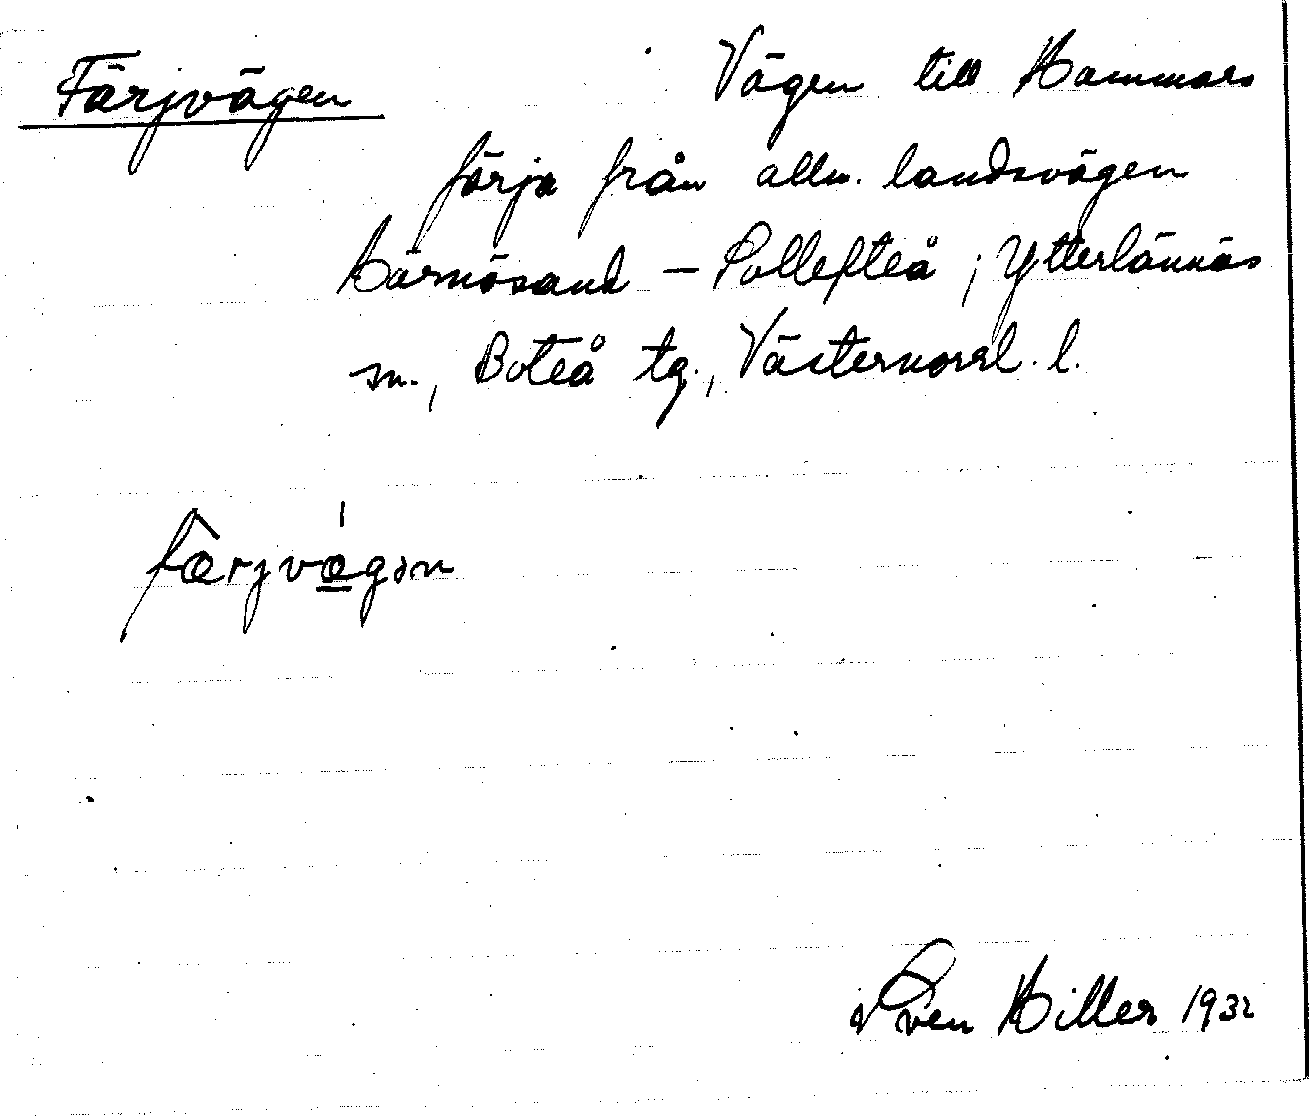 Färjvägen Vägen till Hammars
färja från allm. landsvägen
Härnösand – Sollefteå ; Ytterlännäs
sn., Boteå tg., Västernorrl. l.
färjvägən
Sven Hiller 1932